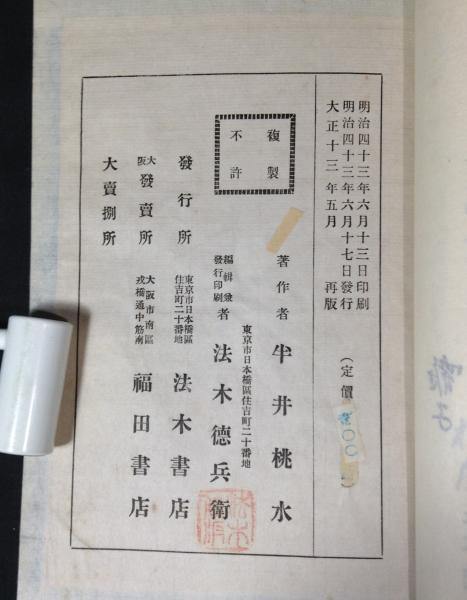 明治四十三年六月十三日印刷
明治四十三年六月十七日發行
大正十三年五月 再版
(定價
複製
不許
著作者 半井桃水
東京市日本橋區住吉町二十番地
編輯兼
發行印刷者 法木德兵衛
發行所 東京市日本橋區
住吉町二十番地 法木書店
大阪發賣所 大阪市南區
戎橋通中筋南 福田書店
大賣捌所